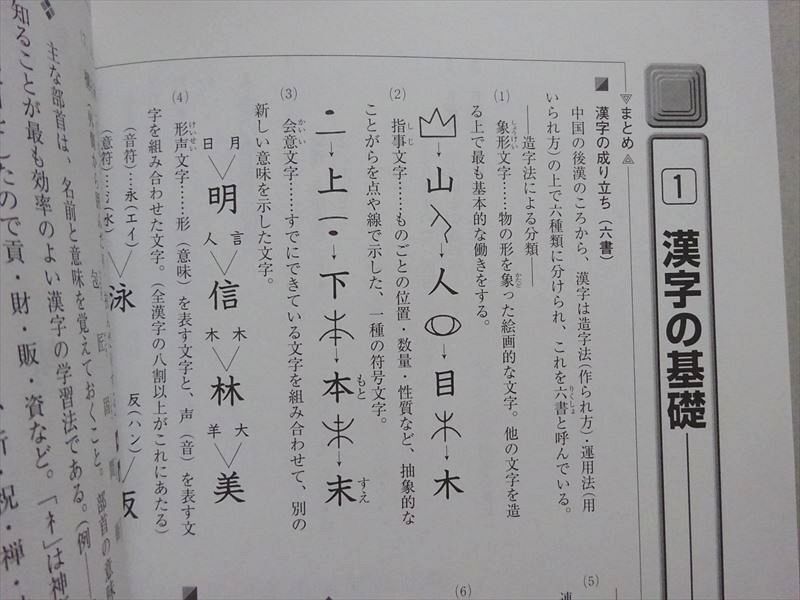 1 漢字の基礎
まとめ
■ 漢字の成り立ち（六書）
中国の後漢のころから、漢字は造字法（作られ方）・運用法（用
いられ方）の上で六種類に分けられ、これを六書と呼んでいる。
りくしょ
――造字法による分類――
(1) 象形文字……物の形を象った絵画的な文字。他の文字を造
しょうけい
かたど
る上で最も基本的な働きをする。
→山
→人
→目
→木
(2) 指事文字……ものごとの位置・数量・性質など、抽象的な
しじ
ことがらを点や線で示した、一種の符号文字。
→上
→下
→本
もと
→末
すえ
(3) 会意文字……すでにできている文字を組み合わせて、別の
かいい
新しい意味を示した文字。
日 月 明
人 言 信
木 木 林
羊 大 美
(4) 形声文字……形（意味）を表す文字と、声（音）を表す文
けいせい
字を組み合わせた文字。（全漢字の八割以上がこれにあたる）
（音符）…永（エイ）
（意符）…氵（水）
泳
反（ハン）
(5)
(6)
主な部首は、名前と意味を覚えておくこと。部首の意味
知ることが最も効率のよい漢字の学習法である。（例――
したので貢・財・販・資など。「礻」は神
祈・祝・禅・